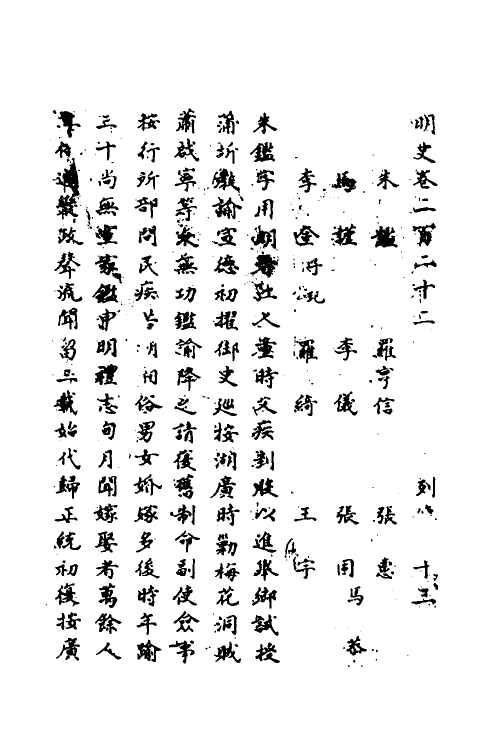 明史卷二百二十二 列傳 十三
朱鑑 羅亨信 張惠
馬謹 李儀 張固 馬恭
李奎 羅綺 王宇
朱鑑字用明晉江人童時父疾刲股以進舉鄉試授
蒲圻教諭宣德初擢御史巡按湖廣時勦梅花洞賊
蕭啟寧等久無功鑑諭降之請復舊制命副使僉事
按行所部問民疾苦湖湘俗男女婚嫁多後時年踰
三十尚無室家鑑申明禮志旬月間嫁娶者萬餘人
政聲流聞留三載始代歸正統初復按廣